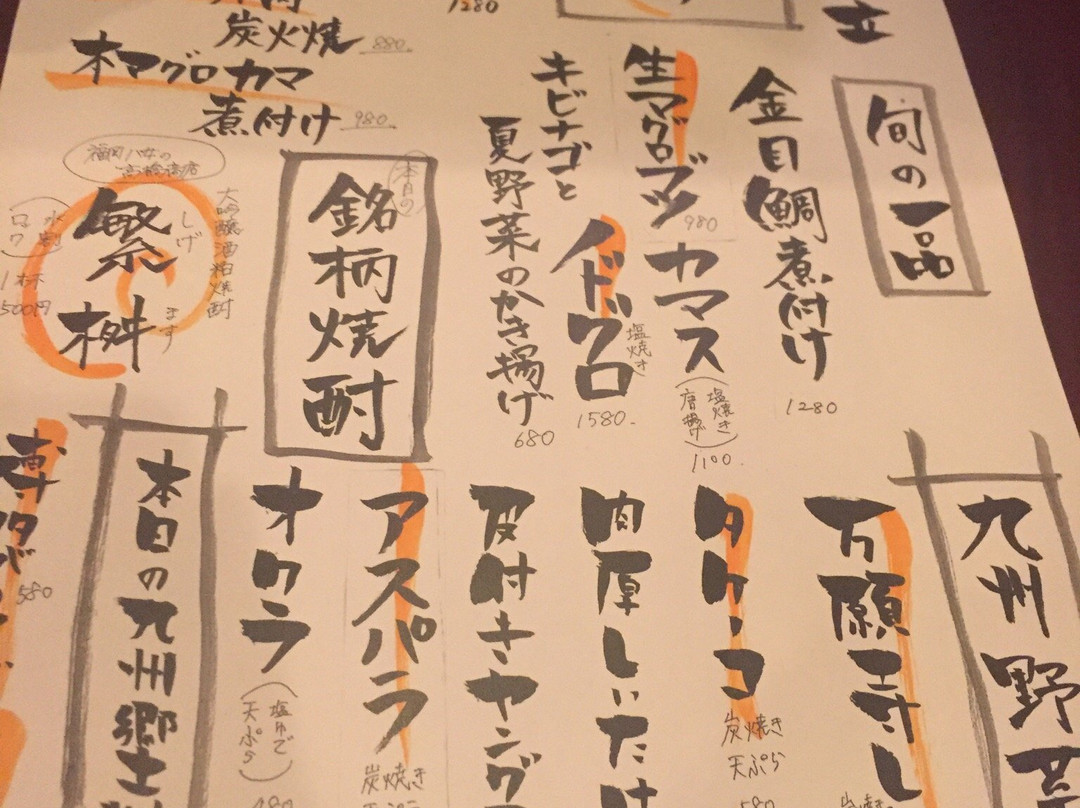 旬の一品
金目鯛煮付け
1280
カマス
(塩焼き
唐揚げ)
1100.
生マグロブツ
980
ノドグロ
塩焼き
1580.
キビナゴと
夏野菜のかき揚げ
680
1280
炭火焼
880.
本マグロカマ
煮付け
980.
本日の
銘柄焼酎
福岡八女の
高橋酒店
大吟醸酒粕焼酎
繁桝
しげ
ます
(水割
ロック)
1杯
500円
九州野菜
万願寺し
タケノコ
炭焼き
天ぷら
580
肉厚しいたけ
皮付きヤング
アスパラ
炭焼き
天ぷら
オクラ
(塩ゆで
天ぷら)
480
本日の九州郷土
580